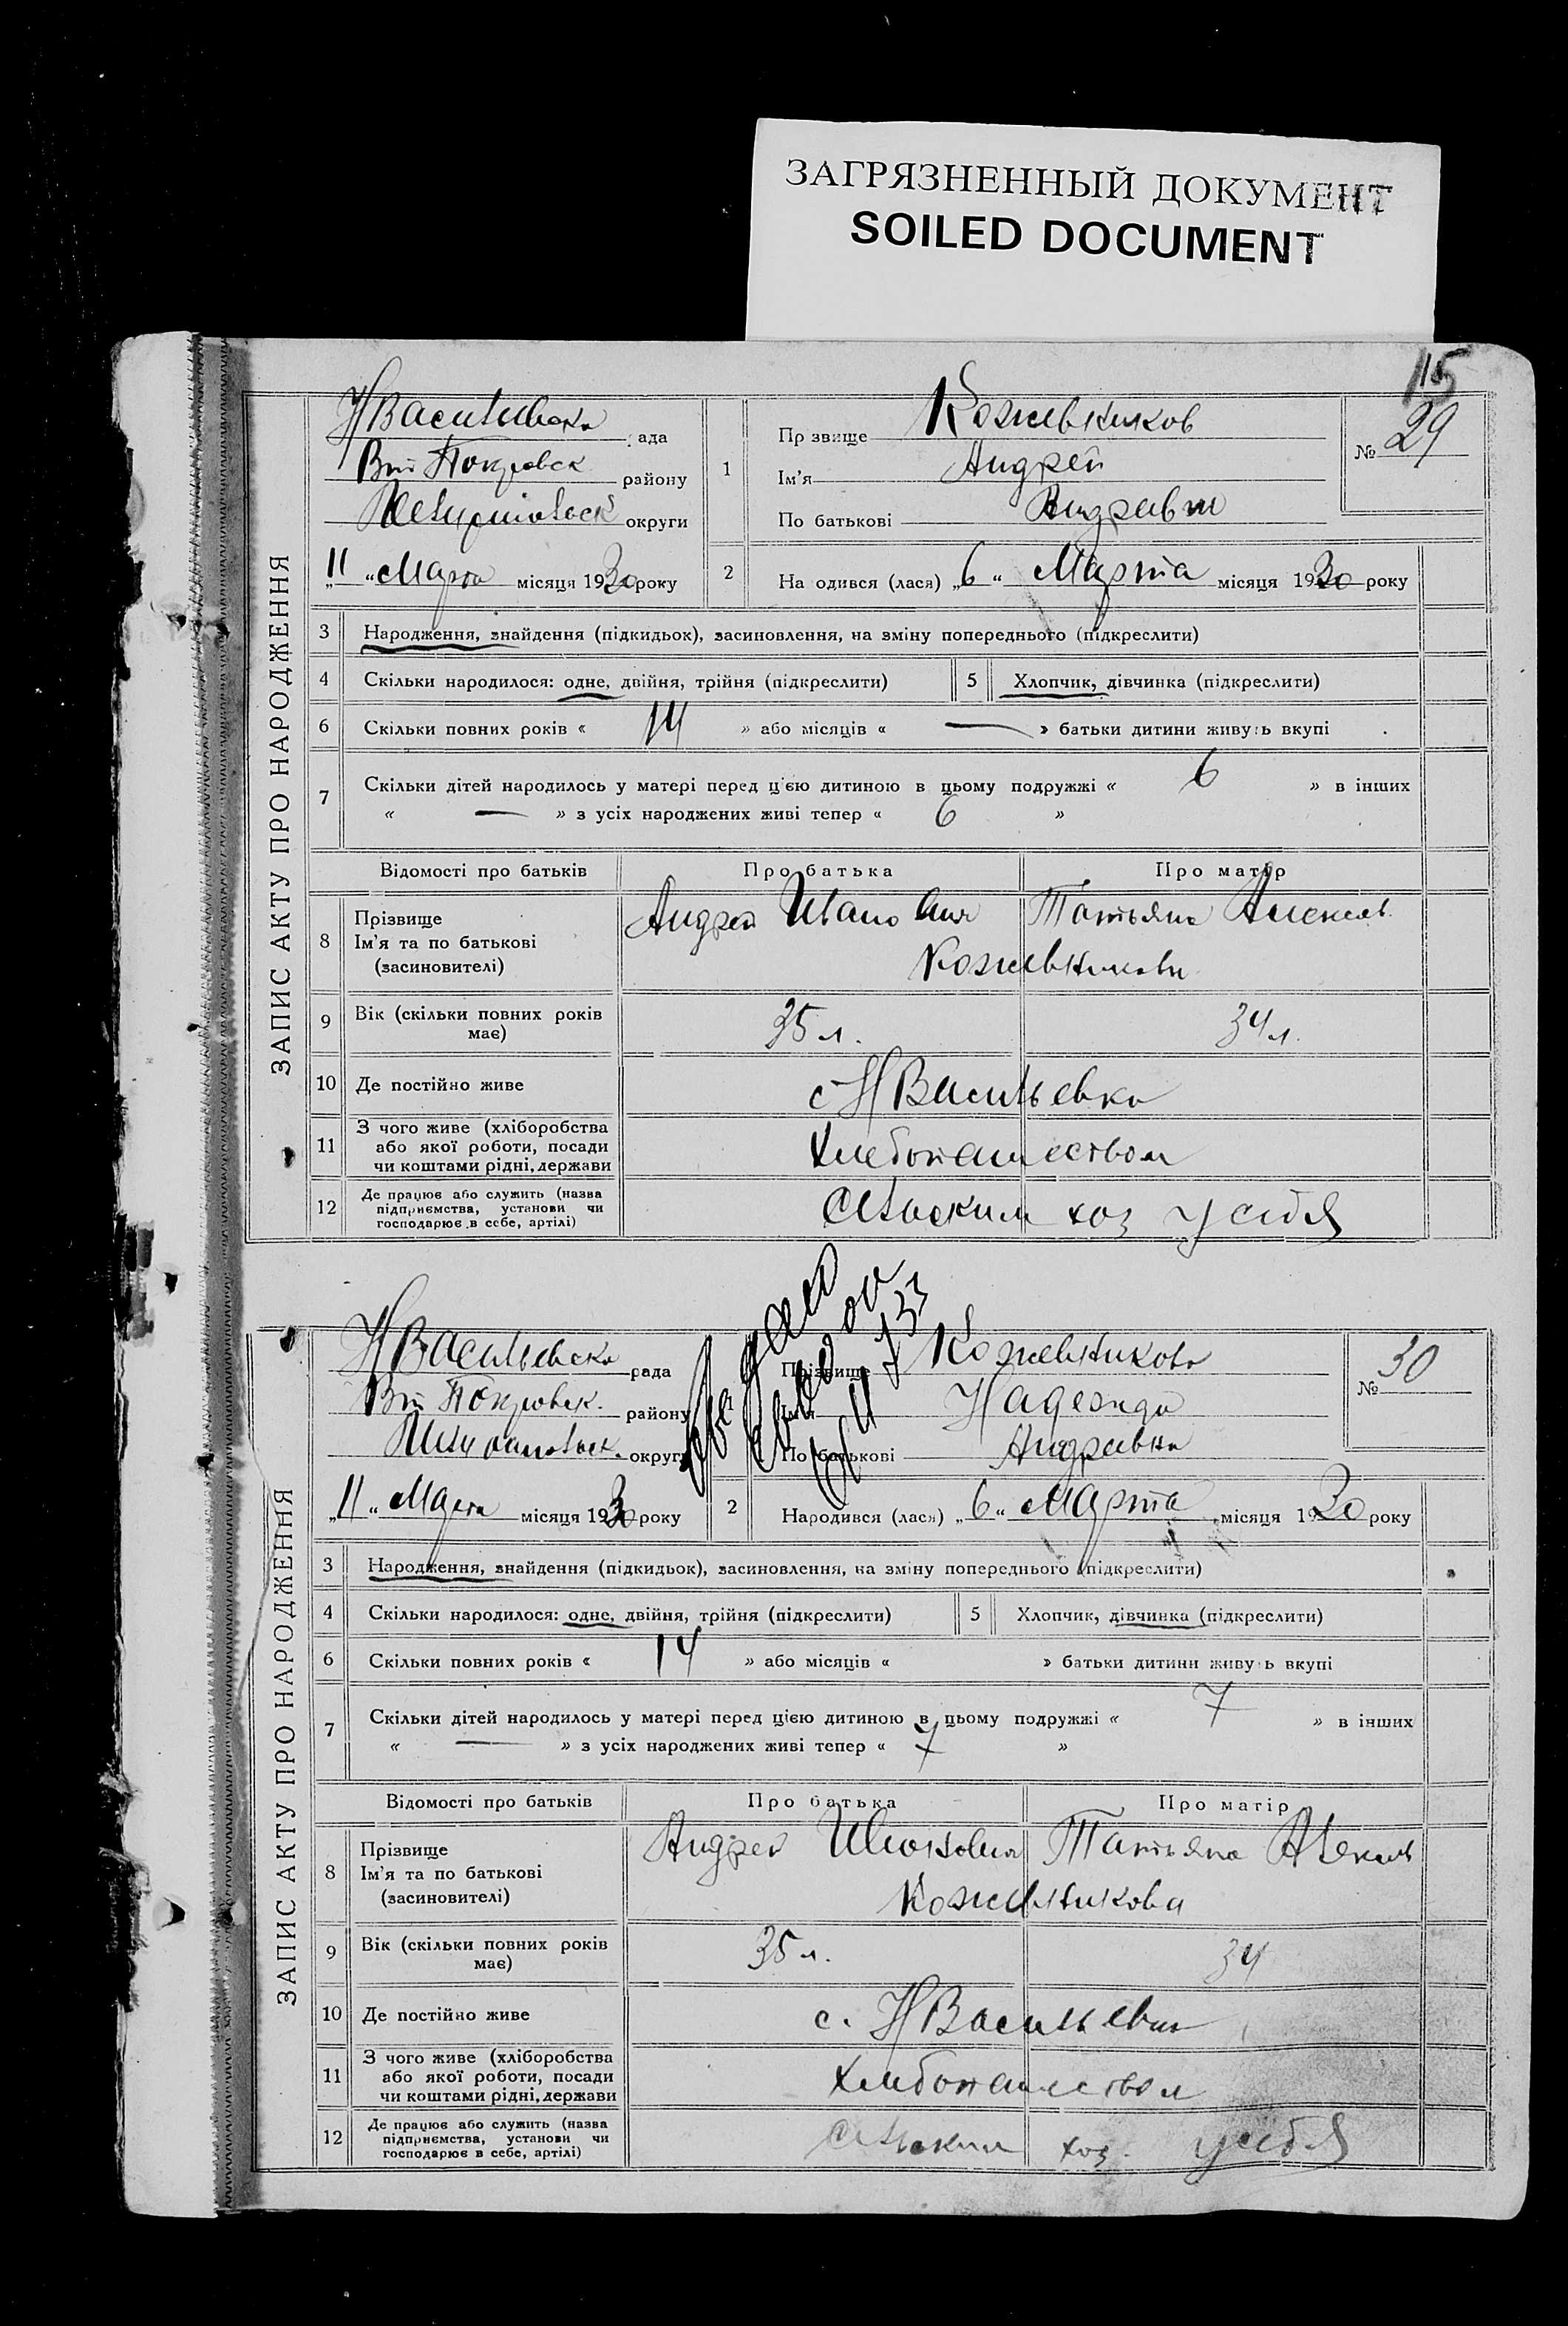 ЗАГРЯЗНЕННЫЙ ДОКУМЕНТ
SOILED DOCUMENT
115
ЗАПИС АКТУ ПРО НАРОДЖЕННЯ
НВасильевска рада
Покровск району
округи
„11“ Марта місяця 1930 року
1 Прізвище Кожевников
Ім'я Андрей
По батькові
№ 29
2 На одився (лася) „6“ Марта місяця 1930 року
3 Народження, знайдення (підкидьок), засиновлення, на зміну попереднього (підкреслити)
4 Скільки народилося: одне, двійня, трійня (підкреслити) 5 Хлопчик, дівчинка (підкреслити)
6 Скільки повних років « 14 » або місяців « — » батьки дитини живуть вкупі
7 Скільки дітей народилось у матері перед цією дитиною в цьому подружжі « 6 » в інших
« — » з усіх народжених живі тепер « 6 »
Відомості про батьків Про батька Про матір
8 Прізвище Ім'я та по батькові (засиновителі) Андрей Иванович Татьяна
Кожевникови
9 Вік (скільки повних років має) 35 л. 34 л.
10 Де постійно живе с НВасильевка
11 З чого живе (хліборобства або якої роботи, посади чи коштами рідні, держави Хлебопашеством
12 Де працює або служить (назва підприємства, установи чи господарює в себе, артілі) Сельским хоз у себя
ЗАПИС АКТУ ПРО НАРОДЖЕННЯ
НВасильевска рада
Покровск. району
округи
„11“ Марта місяця 1930 року
Прізвище Кожевникова
Ім'я Надежда
По батькові Андревна
№ 30
2 Народився (лася) „6“ Марта місяця 1930 року
3 Народження, знайдення (підкидьок), засиновлення, на зміну попереднього (підкреслити)
4 Скільки народилося: одне, двійня, трійня (підкреслити) 5 Хлопчик, дівчинка (підкреслити)
6 Скільки повних років « 14 » або місяців « » батьки дитини живуть вкупі
7 Скільки дітей народилось у матері перед цією дитиною в цьому подружжі « 7 » в інших
« — » з усіх народжених живі тепер « 7 »
Відомості про батьків Про батька Про матір
8 Прізвище Ім'я та по батькові (засиновителі) Андрей Иванович Татьяна
Кожевникова
9 Вік (скільки повних років має) 35 л. 34
10 Де постійно живе с. НВасильевка
11 З чого живе (хліборобства або якої роботи, посади чи коштами рідні, держави Хлебопашеством
12 Де працює або служить (назва підприємства, установи чи господарює в себе, артілі) Сельским хоз. у себя